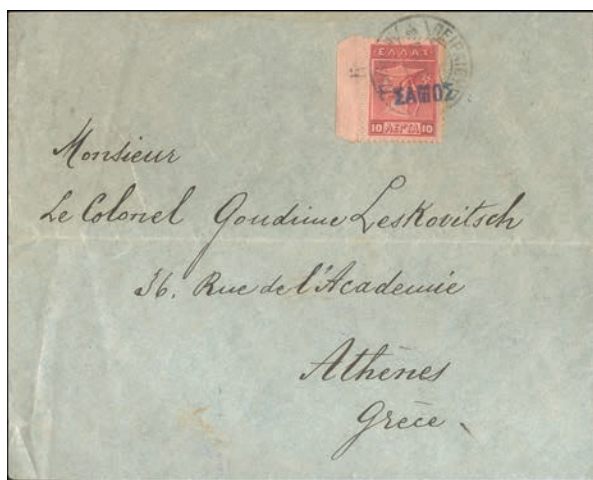 ΕΛΛΑΣ
ΣΑΜΟΣ
10 ΛΕΠΤΑ 10
Monsieur
Le Colonel Goudime Leskovitsch
36. Rue de l'Academie
Athènes
Grèce